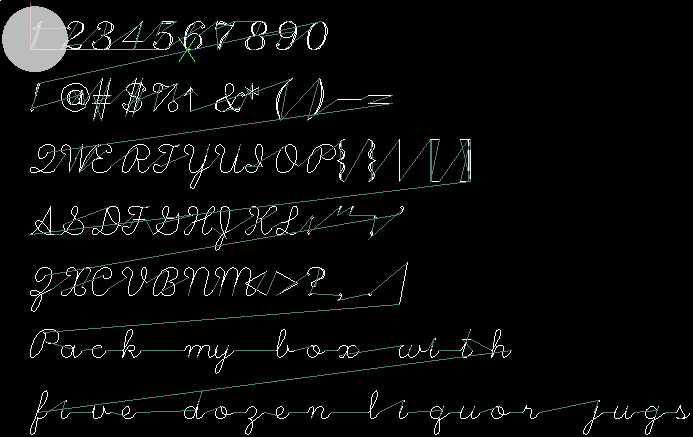 1234567890
! @#$%↑&*()—=
QWERTYUIOP{}|[]
ASDFGHJKL:";'
ZXCVBNM<>?,./
Pack my box with
five dozen liquor jugs